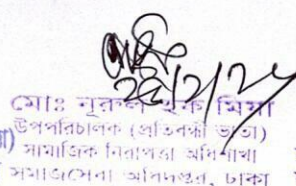 ২৫/২/২৫
মোঃ নূরুল হক মিয়া
উপপরিচালক (প্রতিবন্ধী ভাতা)
সামাজিক নিরাপত্তা অধিশাখা
সমাজসেবা অধিদপ্তর, ঢাকা